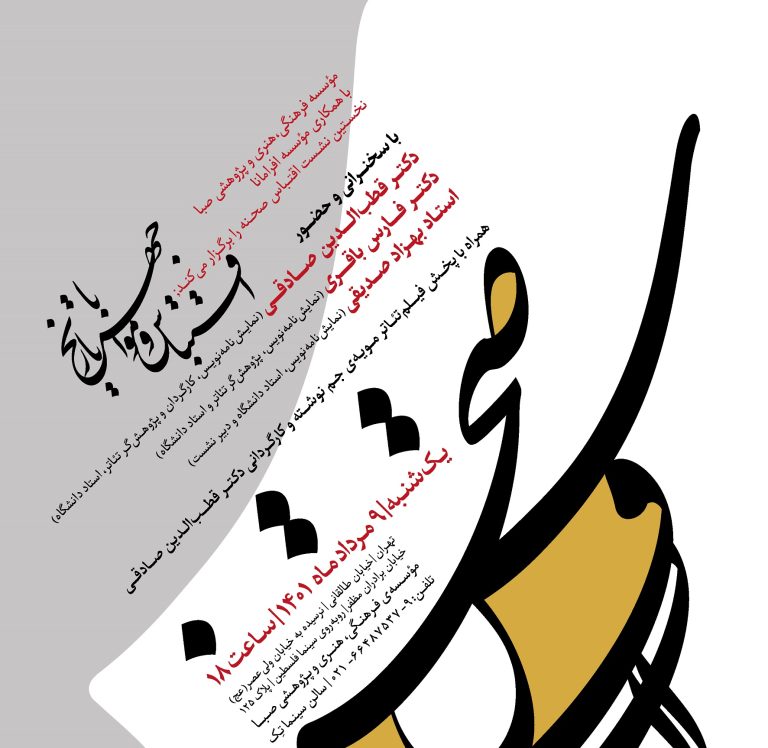 مؤسسه فرهنگی، هنری و پژوهشی صبا
با همکاری مؤسسه افرامانا
نخستین نشست اقتباس صحنه را برگزار می‌کند:
با سخنرانی و حضور
دکتر قطب‌الدین صادقی (نمایش‌نامه‌نویس، کارگردان و پژوهش‌گر تئاتر، استاد دانشگاه)
دکتر فارس باقری (نمایش‌نامه‌نویس، پژوهش‌گر تئاتر و استاد دانشگاه)
استاد بهزاد صدیقی (نمایش‌نامه‌نویس، استاد دانشگاه و دبیر نشست)
همراه با پخش فیلم‌تئاتر مویه‌ی جم نوشته و کارگردانی دکتر قطب‌الدین صادقی
یک‌شنبه/۹ مرداد ماه ۱۴۰۱/ساعت ۱۸
تهران/خیابان طالقانی/نرسیده به خیابان ولی عصر(عج)
خیابان برادران مظفر/روبه‌روی سینما فلسطین/پلاک ۱۲۵
مؤسسه‌ی فرهنگی، هنری و پژوهشی صبا
تلفن:۹-۶۶۴۸۷۵۳۷-۰۲۱/سالن سینما تِک